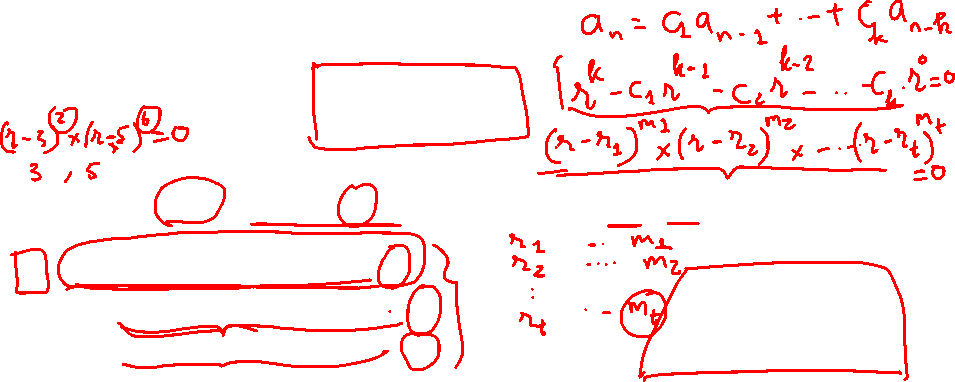 aₙ = c₁aₙ₋₁ + ... + cₖaₙ₋ₖ
rᵏ - c₁rᵏ⁻¹ - c₂rᵏ⁻² - ... - cₖ.r⁰=0
(r-r₁)^m₁ × (r-r₂)^m₂ × ...(r-r_t)^m_t
=0
(r-3)^2 × (r-5)^6 =0
3 , 5
r₁ ... m₁
r₂ ... m₂
:
r_t ... m_t